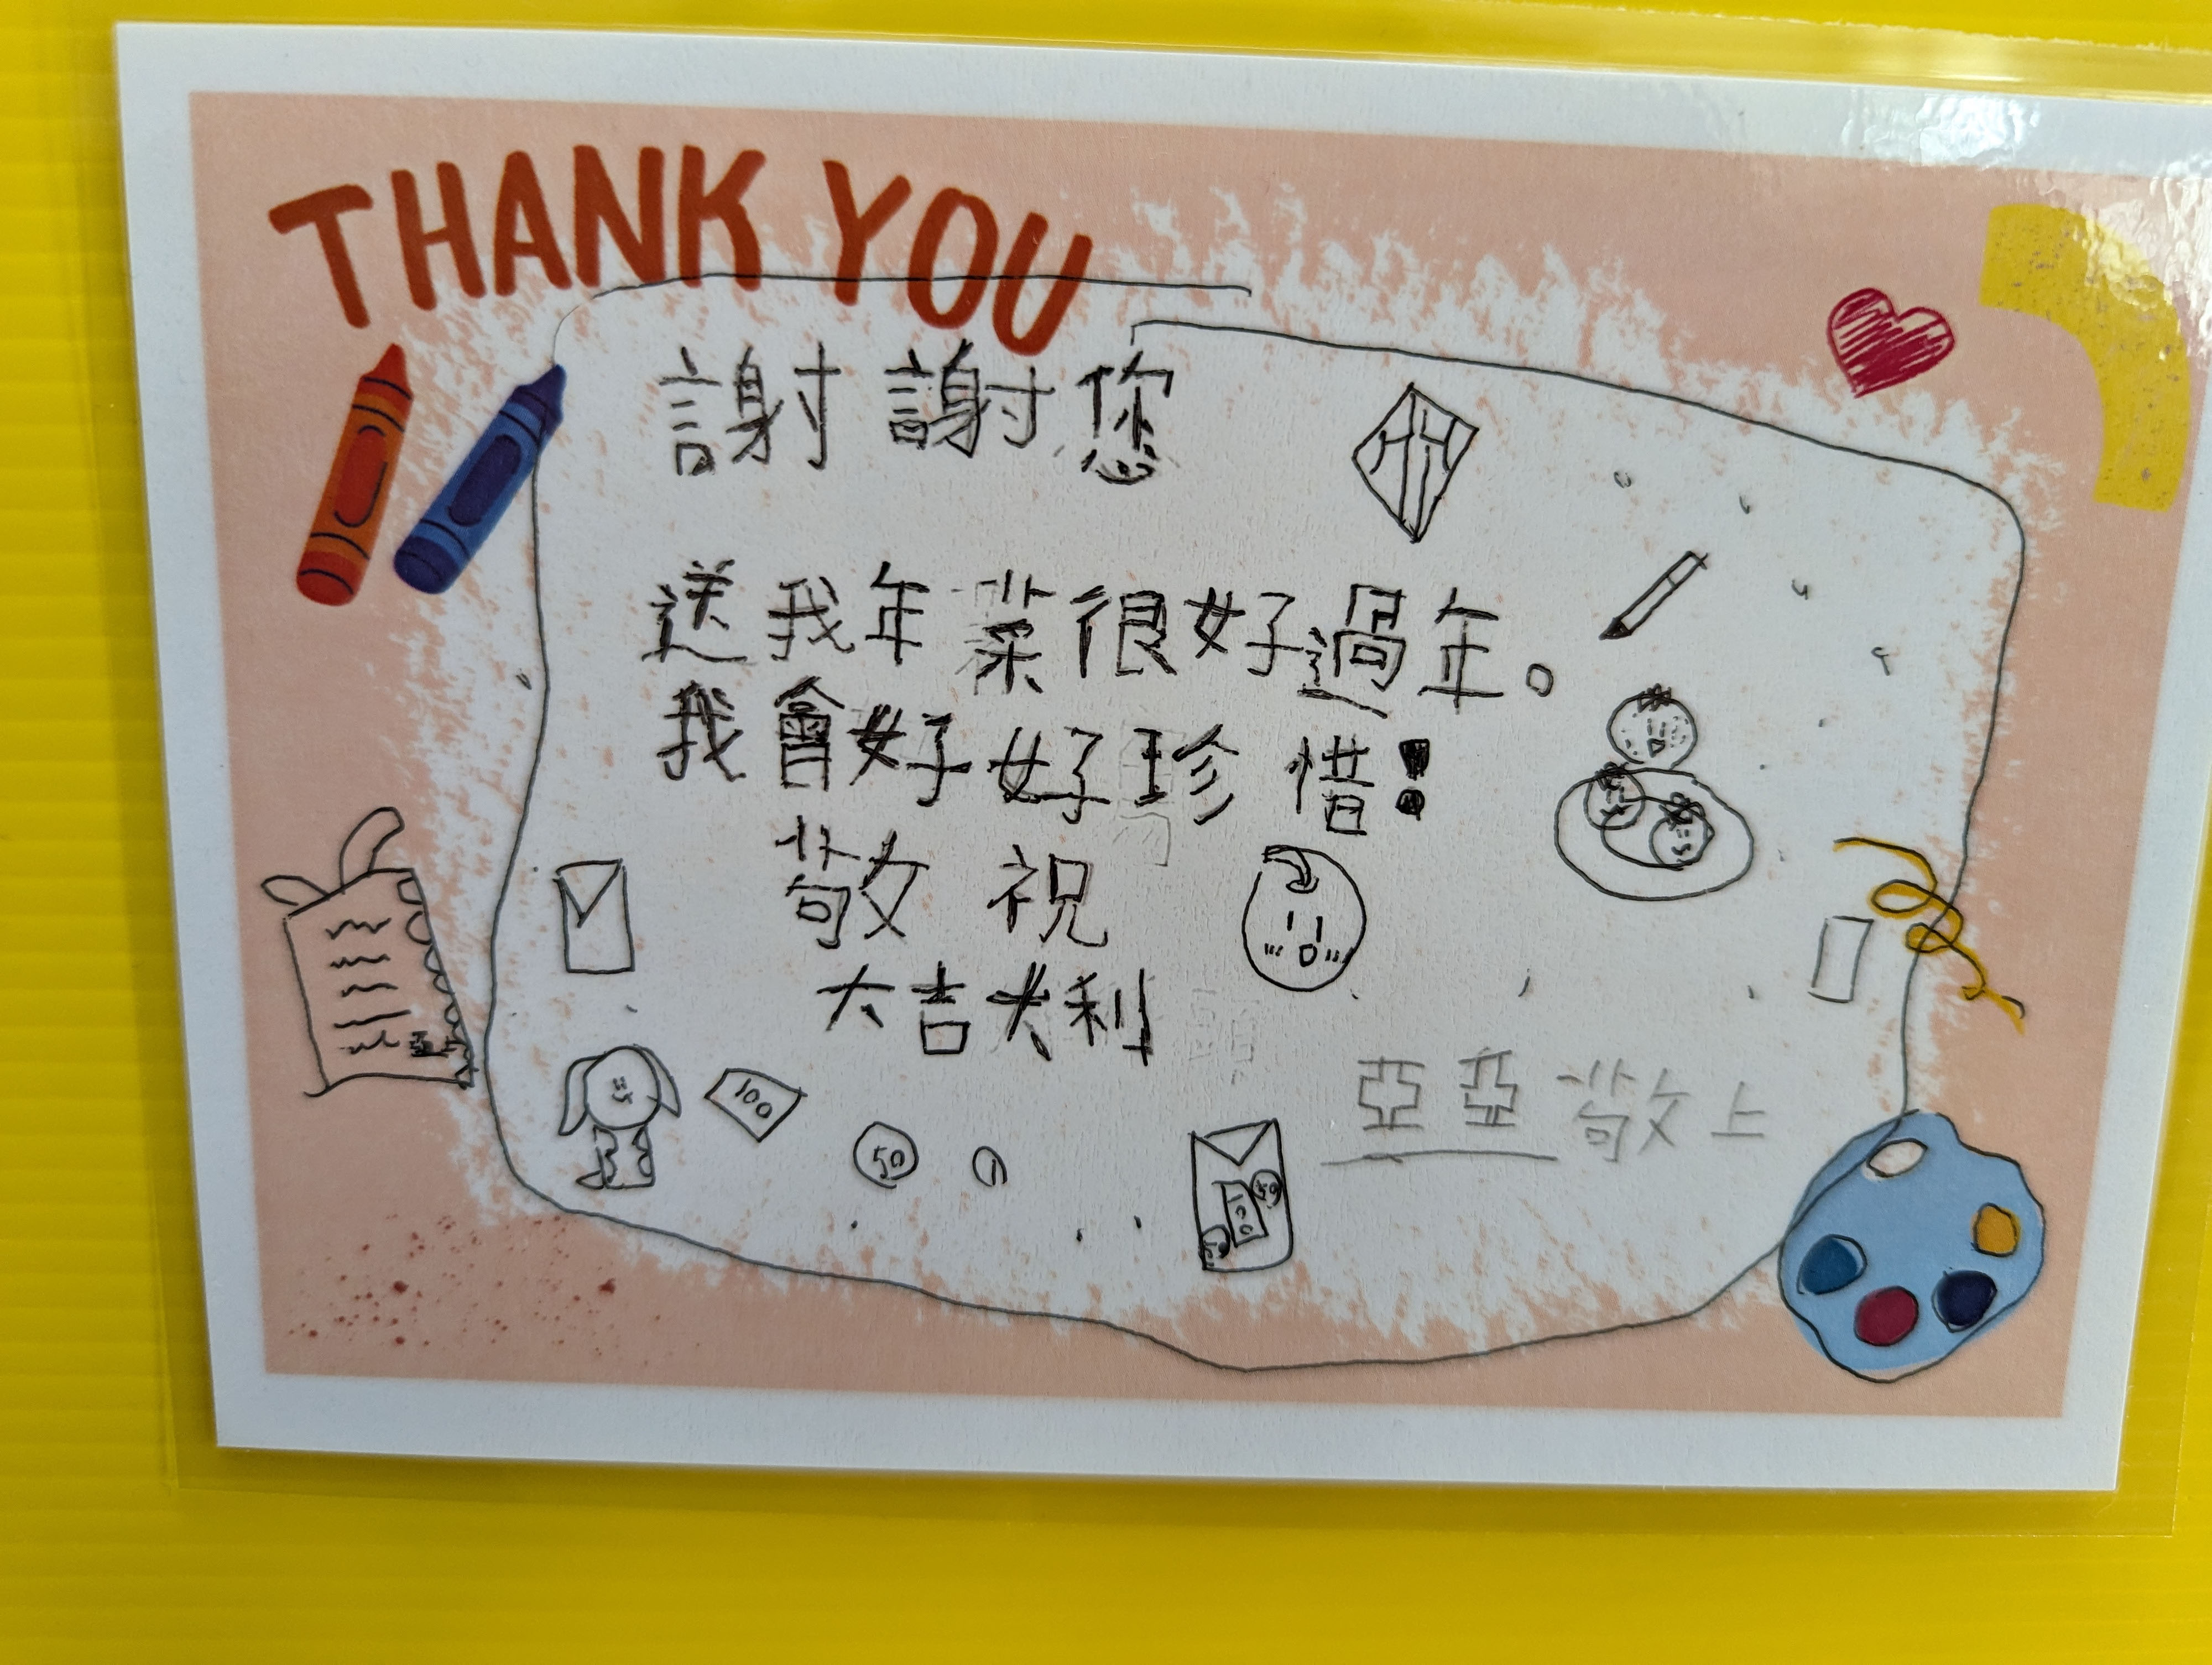 THANK YOU
謝謝您
送我年菜很好過年。
我會好好珍惜!
敬祝
大吉大利
亞亞敬上
100
50
1
50
100